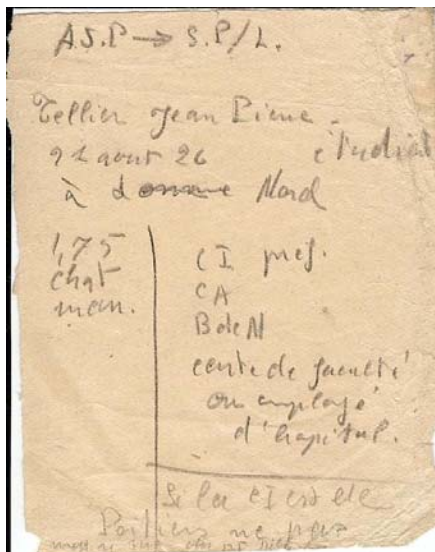 A.S.P → S.P/L.
Tellier Jean Pierre.
21 aout 26 étudiant
à Nord
1,75
chat
marr.
CI pref.
CA
B de N
carte de faculté
ou employé
d'hopital.
Si la CI est de
Poitiers ne pas